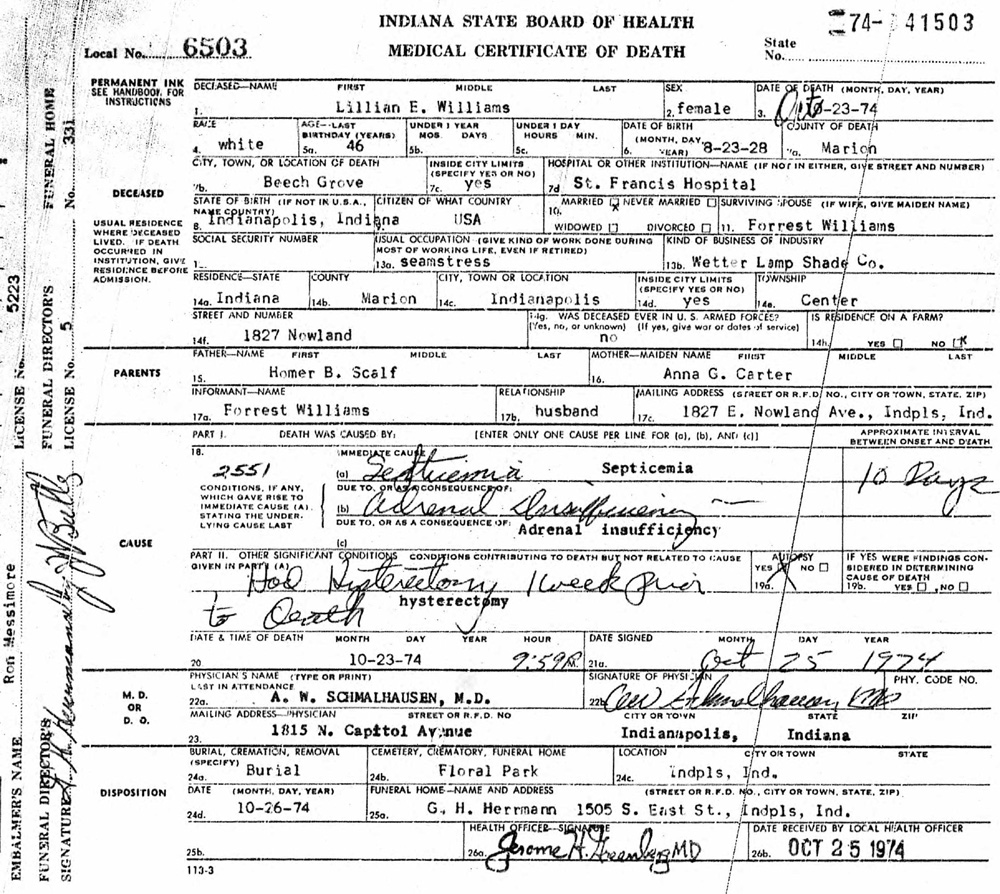 INDIANA STATE BOARD OF HEALTH
74- 41503
Local No. 6503
MEDICAL CERTIFICATE OF DEATH
State No.
PERMANENT INK
SEE HANDBOOK FOR
INSTRUCTIONS
DECEASED—NAME FIRST MIDDLE LAST
1. Lillian E. Williams
SEX
2. female
DATE OF DEATH (MONTH, DAY, YEAR)
3. 10-23-74
RACE
4. white
AGE—LAST BIRTHDAY (YEARS)
5a. 46
UNDER 1 YEAR
MOS. DAYS
5b.
UNDER 1 DAY
HOURS MIN.
5c.
DATE OF BIRTH
(MONTH, DAY, YEAR)
6. 8-23-28
COUNTY OF DEATH
7a. Marion
DECEASED
CITY, TOWN, OR LOCATION OF DEATH
7b. Beech Grove
INSIDE CITY LIMITS
(SPECIFY YES OR NO)
7c. yes
HOSPITAL OR OTHER INSTITUTION—NAME (IF NOT IN EITHER, GIVE STREET AND NUMBER)
7d St. Francis Hospital
USUAL RESIDENCE
WHERE DECEASED
LIVED. IF DEATH
OCCURRED IN
INSTITUTION, GIVE
RESIDENCE BEFORE
ADMISSION.
STATE OF BIRTH (IF NOT IN U.S.A.,
NAME COUNTRY)
8. Indianapolis, Indiana
CITIZEN OF WHAT COUNTRY
USA
10. MARRIED x NEVER MARRIED
WIDOWED DIVORCED
SURVIVING SPOUSE (IF WIFE, GIVE MAIDEN NAME)
11. Forrest Williams
SOCIAL SECURITY NUMBER
USUAL OCCUPATION (GIVE KIND OF WORK DONE DURING
MOST OF WORKING LIFE, EVEN IF RETIRED)
13a. seamstress
KIND OF BUSINESS OF INDUSTRY
13b. Wetter Lamp Shade Co.
RESIDENCE—STATE
14a. Indiana
COUNTY
14b. Marion
CITY, TOWN OR LOCATION
14c. Indianapolis
INSIDE CITY LIMITS
(SPECIFY YES OR NO)
14d. yes
TOWNSHIP
14e. Center
STREET AND NUMBER
14f. 1827 Nowland
14g. WAS DECEASED EVER IN U. S. ARMED FORCES?
(Yes, no, or unknown) (If yes, give war or dates of service)
no
IS RESIDENCE ON A FARM?
14h. YES NO x
PARENTS
FATHER—NAME FIRST MIDDLE LAST
15. Homer B. Scalf
MOTHER—MAIDEN NAME FIRST MIDDLE LAST
16. Anna G. Carter
INFORMANT—NAME
17a. Forrest Williams
RELATIONSHIP
17b. husband
MAILING ADDRESS (STREET OR R.F.D. NO., CITY OR TOWN, STATE, ZIP)
17c. 1827 E. Nowland Ave., Indpls, Ind.
PART I. DEATH WAS CAUSED BY: [ENTER ONLY ONE CAUSE PER LINE FOR (a), (b), AND (c)]
APPROXIMATE INTERVAL
BETWEEN ONSET AND DEATH
18.
2551
CONDITIONS, IF ANY,
WHICH GAVE RISE TO
IMMEDIATE CAUSE (A).
STATING THE UNDER-
LYING CAUSE LAST
IMMEDIATE CAUSE
(a) Septicemia Septicemia 10 Days
DUE TO, OR AS A CONSEQUENCE OF:
(b) Adrenal Insufficiency
DUE TO, OR AS A CONSEQUENCE OF: Adrenal insufficiency
(c)
CAUSE
PART II. OTHER SIGNIFICANT CONDITIONS CONDITIONS CONTRIBUTING TO DEATH BUT NOT RELATED TO CAUSE
GIVEN IN PART I (A)
Had Hysterectomy 1 week prior
hysterectomy
to Death
AUTOPSY
YES X NO
19a.
IF YES WERE FINDINGS CON-
SIDERED IN DETERMINING
CAUSE OF DEATH
19b. YES , NO
DATE & TIME OF DEATH MONTH DAY YEAR HOUR
20. 10-23-74 9:59
DATE SIGNED MONTH DAY YEAR
21a. Oct 25 1974
M. D.
OR
D. O.
PHYSICIAN'S NAME (TYPE OR PRINT)
LAST IN ATTENDANCE
22a. A. W. SCHMALHAUSEN, M.D.
SIGNATURE OF PHYSICIAN
22b. AW Schmalhausen MD
PHY. CODE NO.
MAILING ADDRESS—PHYSICIAN STREET OR R.F.D. NO CITY OR TOWN STATE ZIP
23. 1815 N. Capitol Avenue Indianapolis, Indiana
DISPOSITION
BURIAL, CREMATION, REMOVAL
(SPECIFY)
24a. Burial
CEMETERY, CREMATORY, FUNERAL HOME
24b. Floral Park
LOCATION CITY OR TOWN STATE
24c. Indpls, Ind.
DATE (MONTH, DAY, YEAR)
24d. 10-26-74
FUNERAL HOME—NAME AND ADDRESS (STREET OR R.F.D. NO., CITY OR TOWN, STATE, ZIP)
25a. G. H. Herrmann 1505 S. East St., Indpls, Ind.
25b.
HEALTH OFFICER—SIGNATURE
26a. Jerome H. Greenberg MD
DATE RECEIVED BY LOCAL HEALTH OFFICER
26b. OCT 25 1974
113-3
EMBALMER'S NAME Ron Messimore LICENSE No. 5223
FUNERAL DIRECTOR'S
SIGNATURE
FUNERAL DIRECTOR'S
LICENSE No. 5
FUNERAL HOME
No. 331